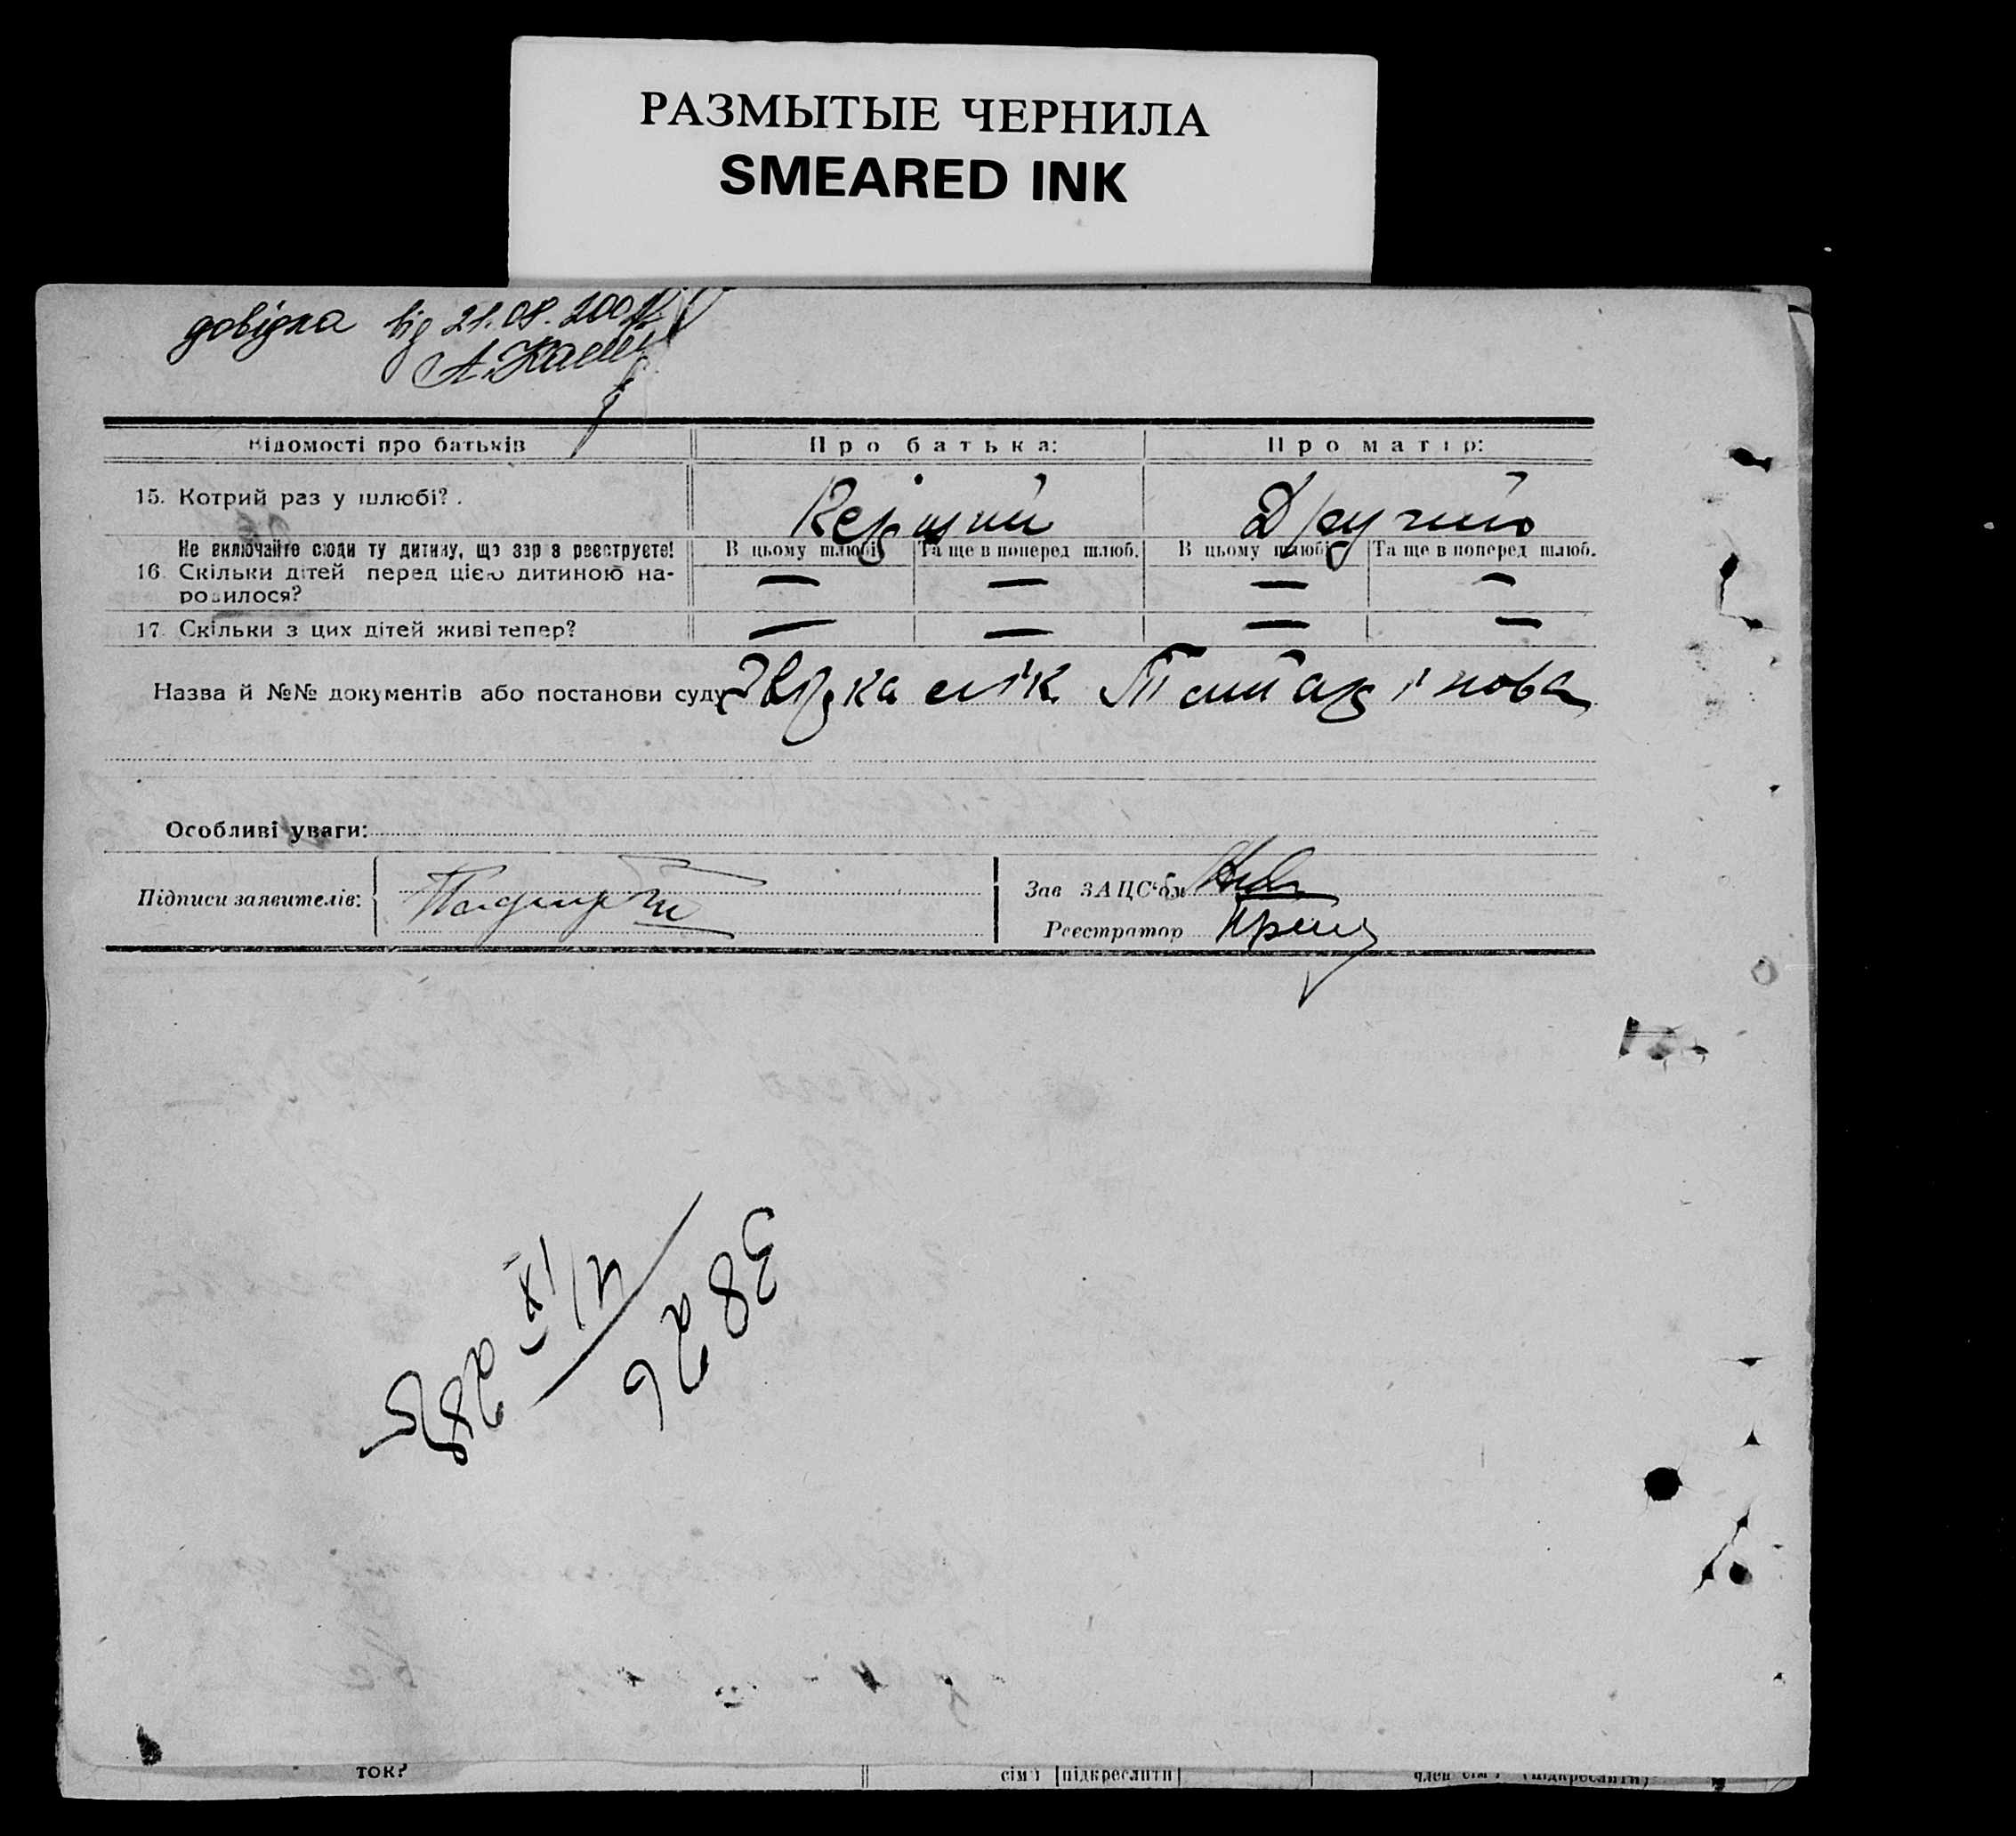 РАЗМЫТЫЕ ЧЕРНИЛА
SMEARED INK
довідка від 21.08.200
Відомості про батьків
Про батька:
Про матір:
15. Котрий раз у шлюбі?.
Другий
Не включайте сюди ту дитину, що зар з реєструєте!
В цьому шлюбі
Та ще в поперед шлюб.
В цьому шлюбі
Та ще в поперед шлюб.
16. Скільки дітей перед цією дитиною на-
родилося?
— — — —
17. Скільки з цих дітей живі тепер?
— — — —
Назва й №№ документів або постанови суду
Особливі уваги:
Підписи заявителів:
Зав ЗАЦС'ом
Реєстратор
3826
4/IX 285
ток?
сім'ї [підкреслити]
член сім'ї (підкреслити)